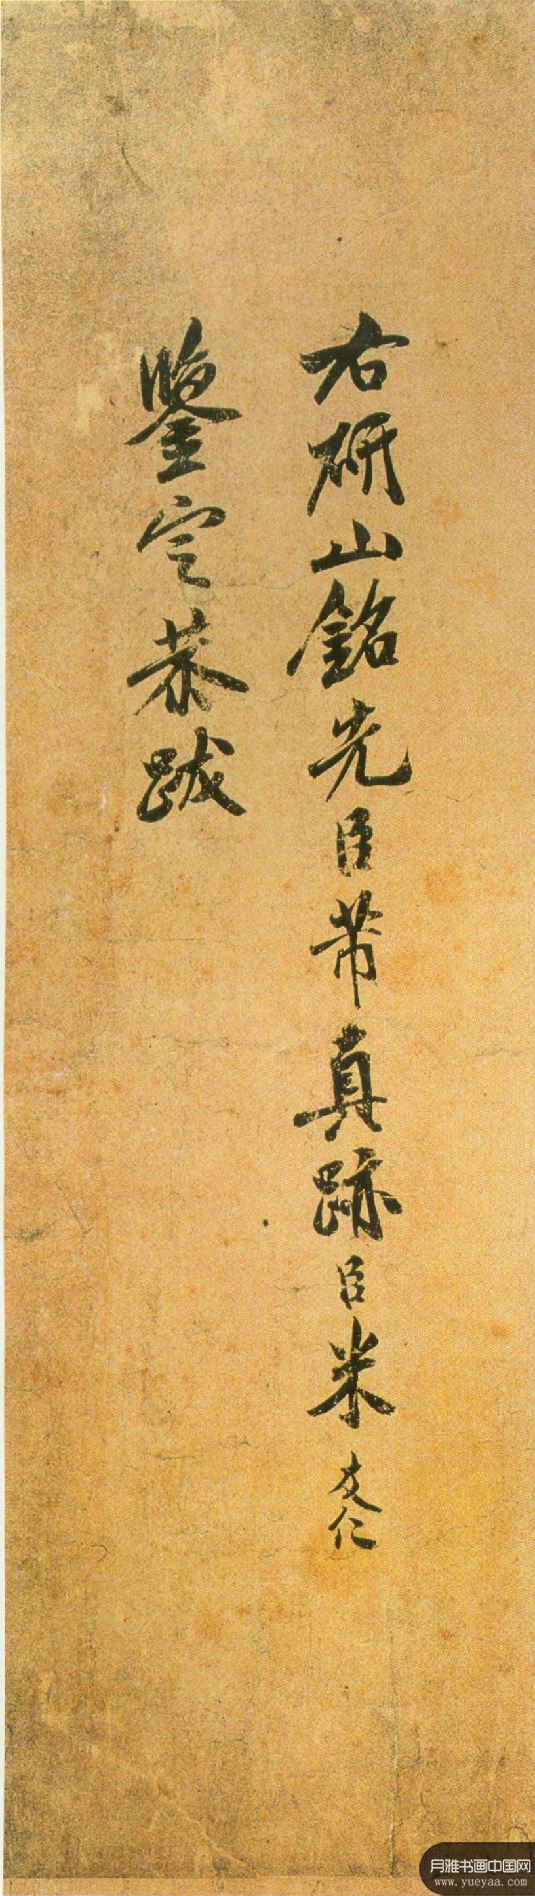 右研山銘先臣芾真跡臣米友仁
鑒定恭跋
月雅书画中国网
www.yueyaa.com